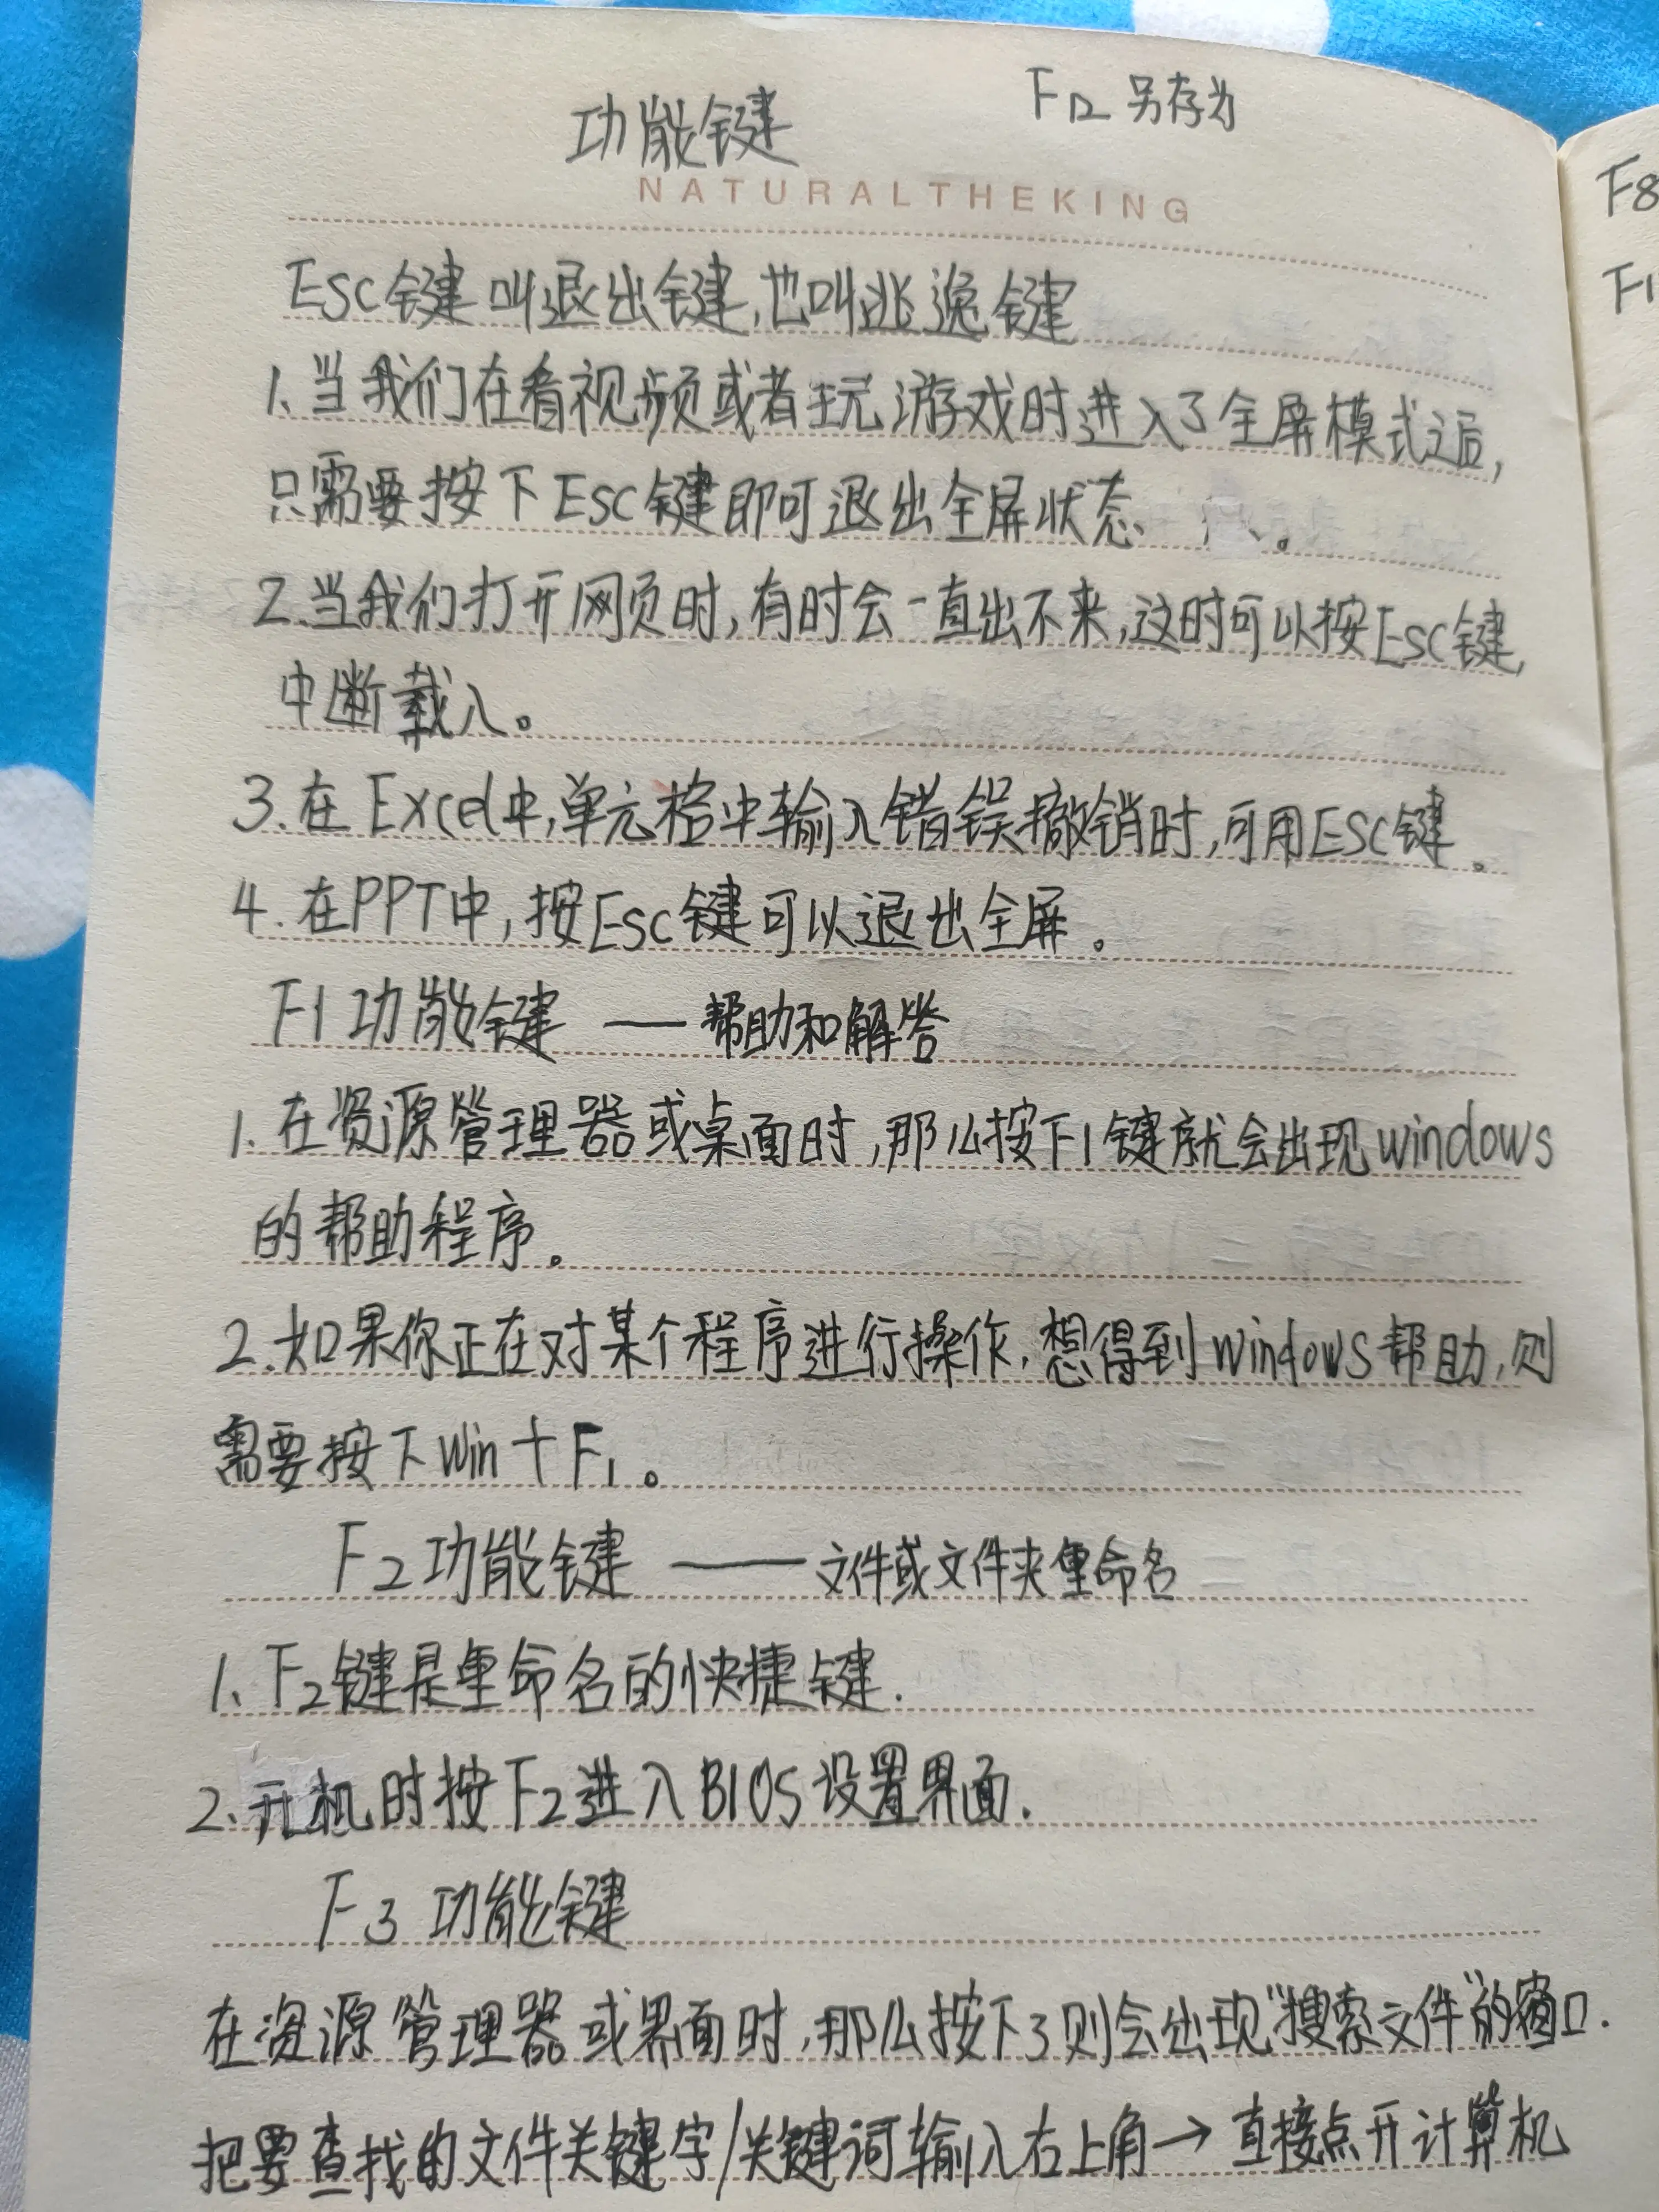 功能键
F12 另存为
NATURALTHEKING
Esc键叫退出键,也叫逃逸键
1、当我们在看视频或者玩游戏时进入了全屏模式之后,
只需要按下Esc键即可退出全屏状态。
2.当我们打开网页时,有时会一直出不来,这时可以按Esc键,
中断载入。
3.在Excel中,单元格中输入错误撤销时,可用ESC键。
4.在PPT中,按Esc键可以退出全屏。
F1功能键 —— 帮助和解答
1.在资源管理器或桌面时,那么按下F1键就会出现windows
的帮助程序。
2.如果你正在对某个程序进行操作,想得到windows帮助,则
需要按下Win+F1。
F2功能键 —— 文件或文件夹重命名
1、F2键是重命名的快捷键.
2、开机时按F2进入BIOS设置界面.
F3功能键
在资源管理器或界面时,那么按下3则会出现“搜索文件”的窗口.
把要查找的文件关键字/关键词输入右上角→直接点开计算机
F8
F1